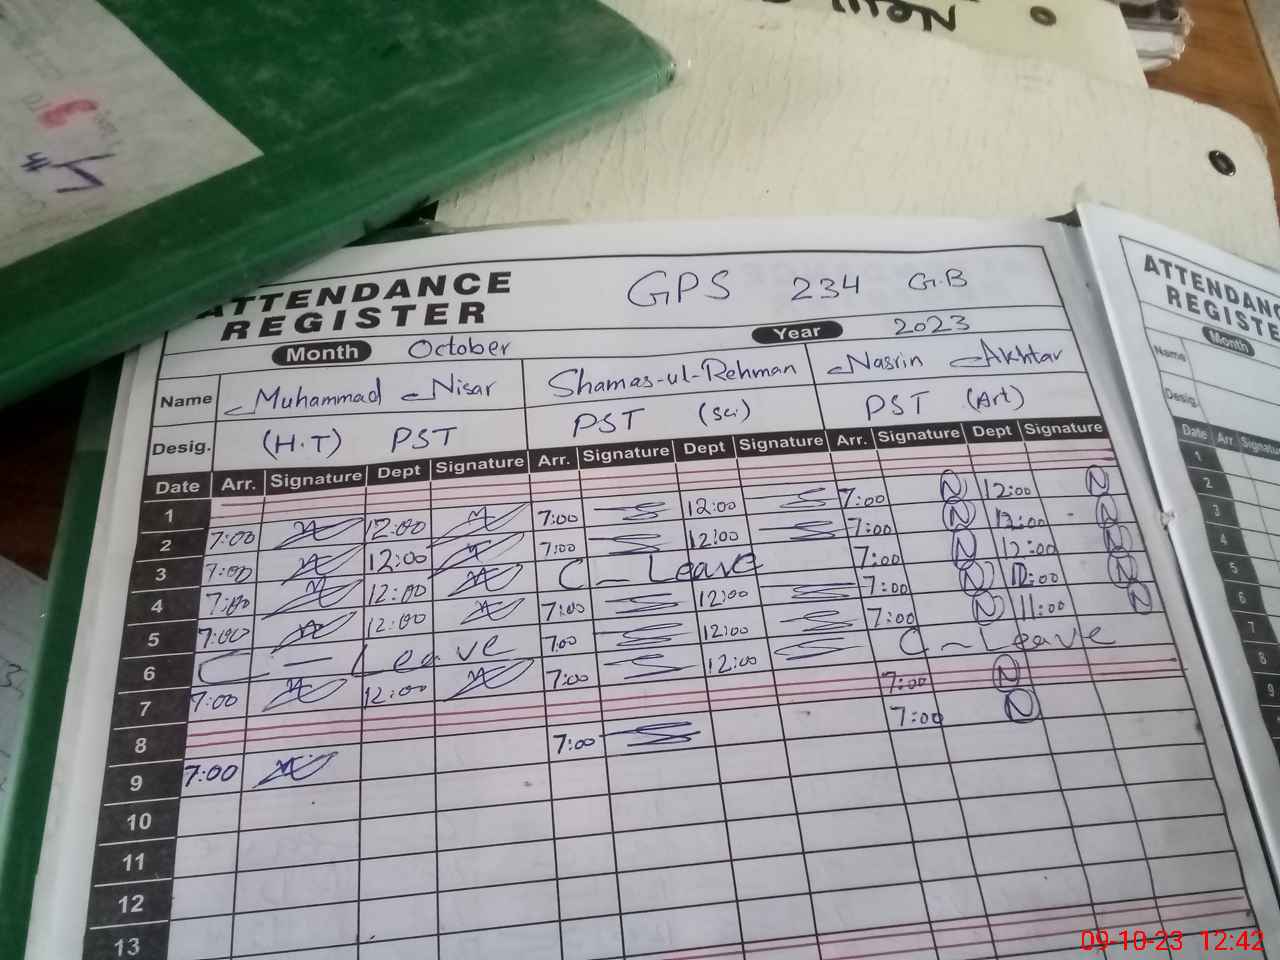 ATTENDANCE
REGISTER
GPS 234 G.B
Month October Year 2023
Name Muhammad Nisar Shamas-ul-Rehman Nasrin Akhtar
Desig. (H.T) PST PST (Sci) PST (Art)
Date Arr. Signature Dept Signature Arr. Signature Dept Signature Arr. Signature Dept Signature
1
2 7:00 12:00 7:00 12:00 7:00 N 12:00 N
3 7:00 12:00 7:00 12:00 7:00 N 12:00 N
4 7:00 12:00 C-Leave 7:00 N 12:00 N
5 7:00 12:00 7:00 12:00 7:00 N 12:00 N
6 C-Leave 7:00 12:00 7:00 N 11:00 N
7 7:00 12:00 7:00 12:00 C-Leave
8 7:00 N
9 7:00 7:00 7:00 N
10
11
12
13
ATTENDANC
REGISTE
Month
Name
Desig.
Date Arr Signatu
1
2
3
4
5
6
7
8
9
09-10-23 12:42